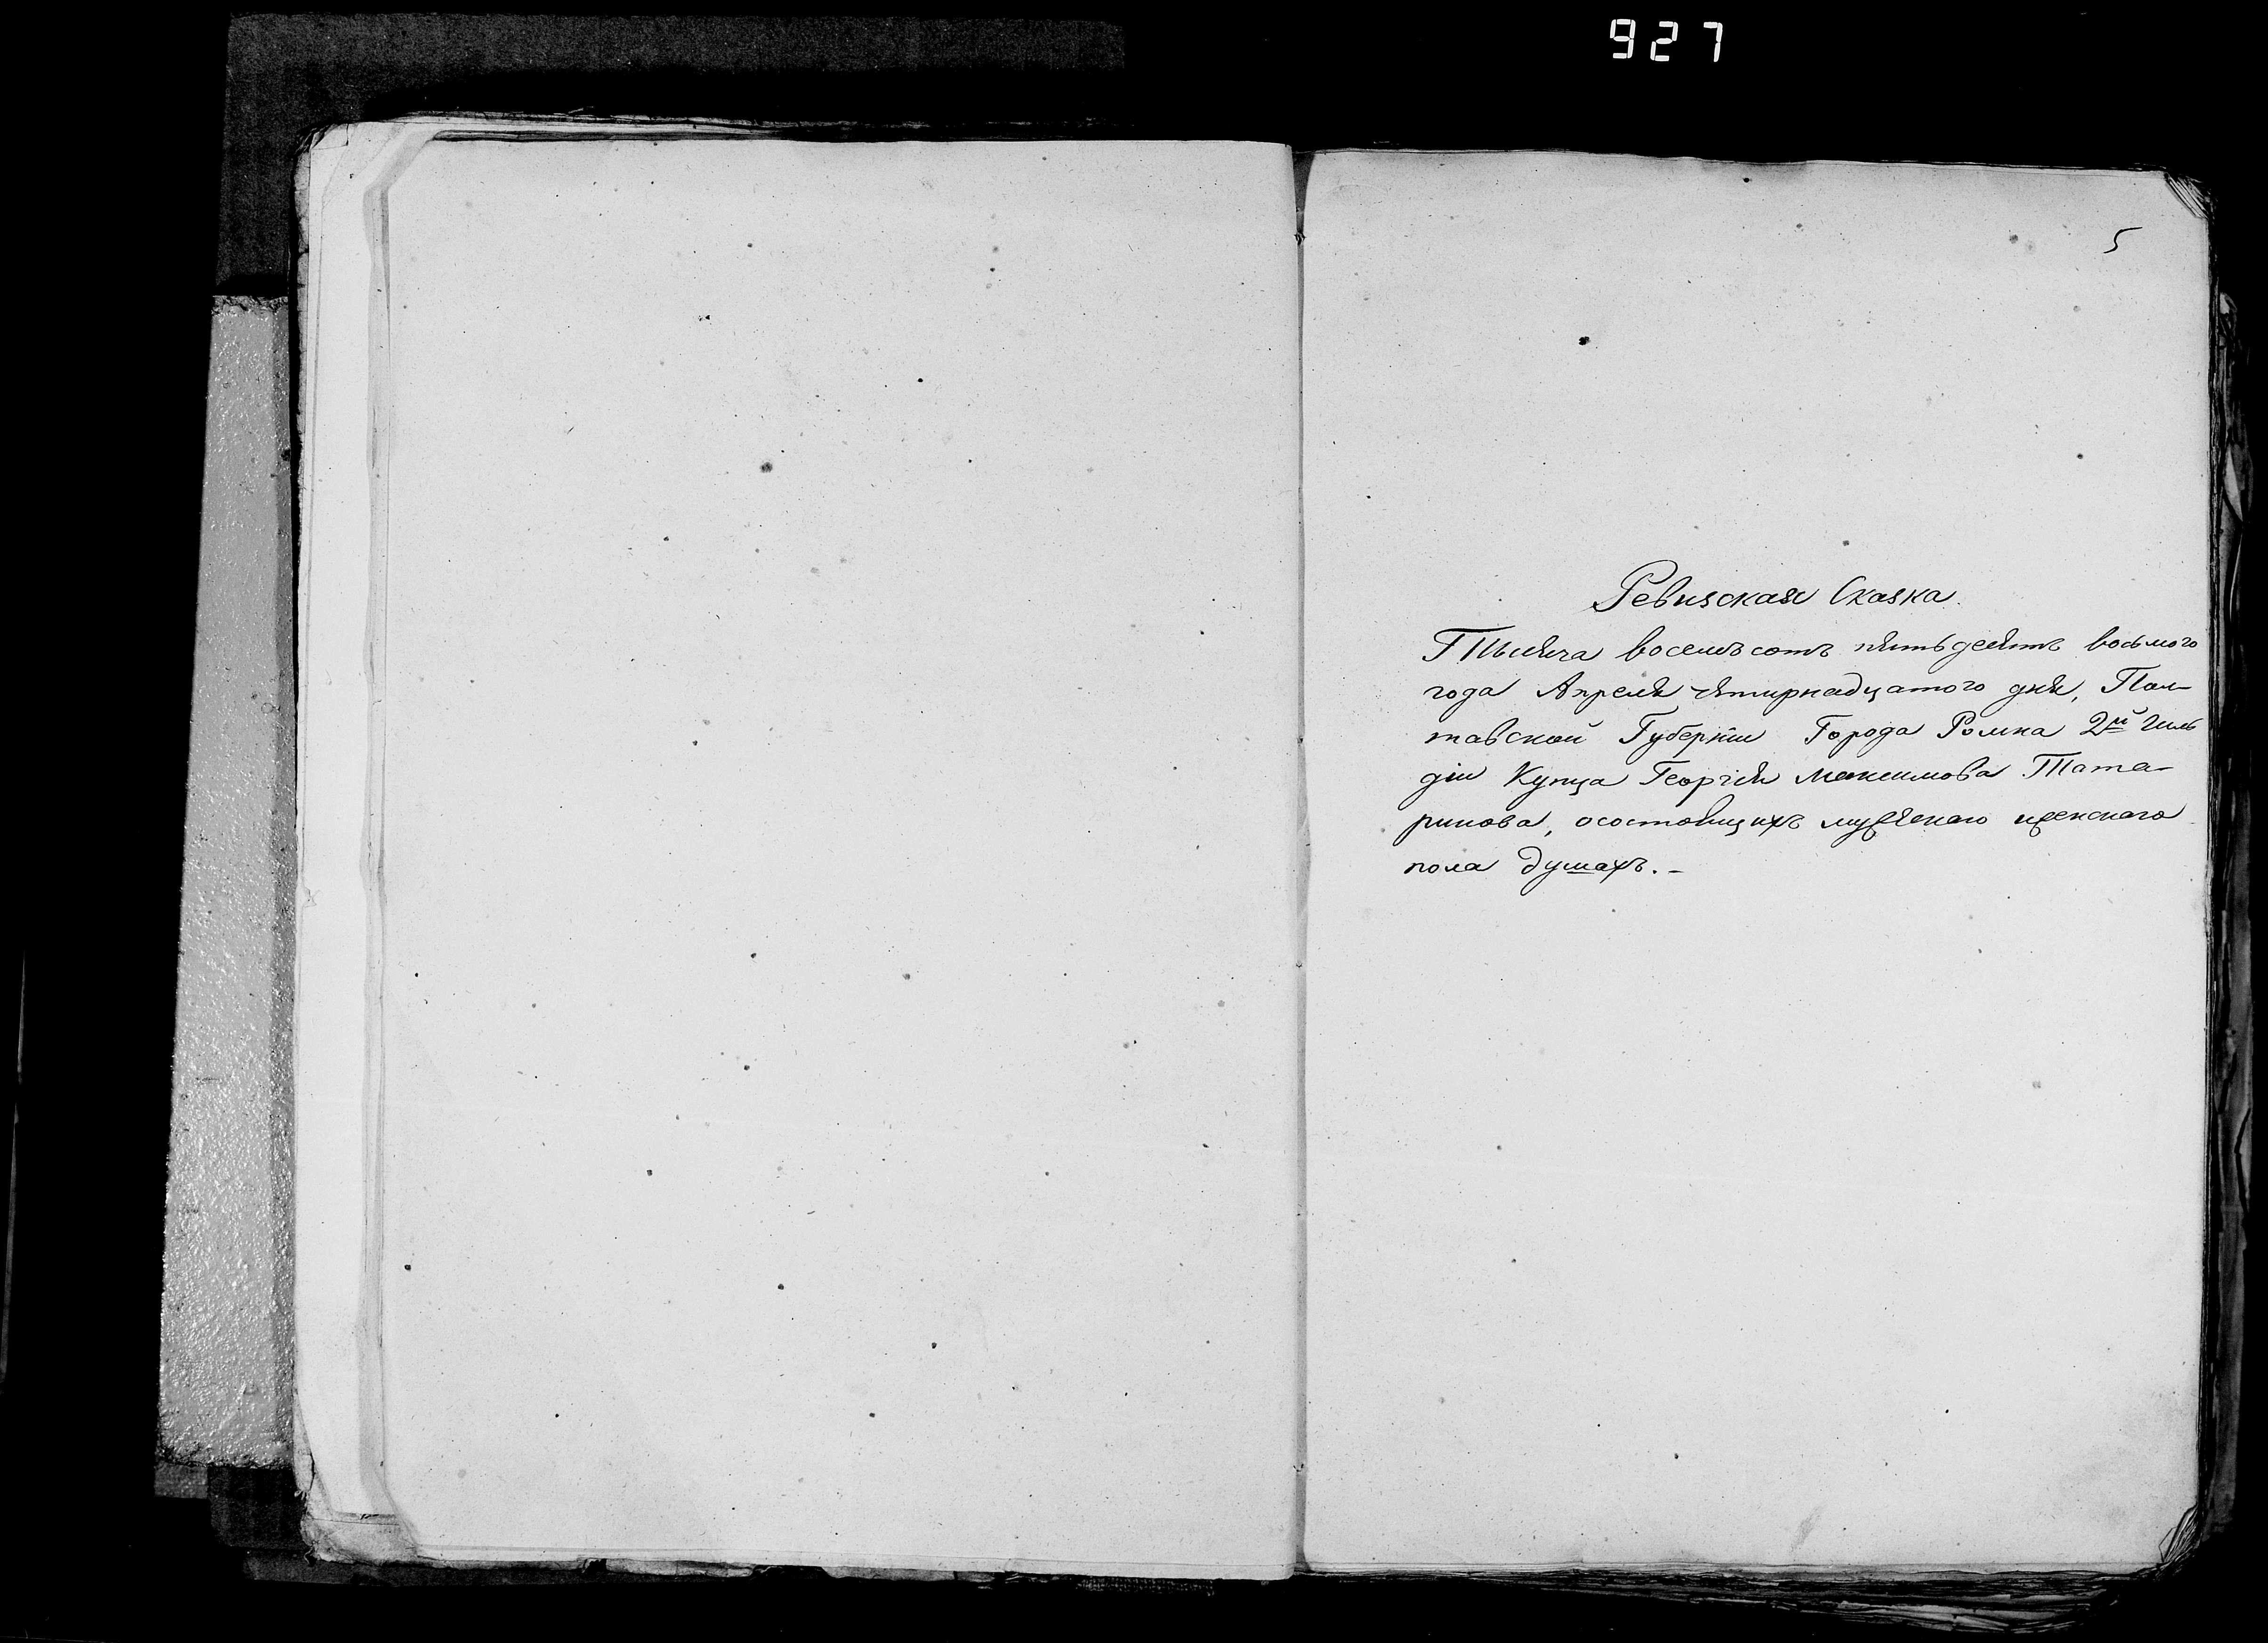 927
5
Ревизская Сказка.
Тысяча восемъсотъ пятьдесятъ восьмого
года Апреля чятирнадцатого дня, Пол-
тавской Губерніи Города Ромна 2й Гиль
діи Купца Георгія Максимова Тата-
ринова, осостоящихъ мужескаго женскаго
пола душахъ.-